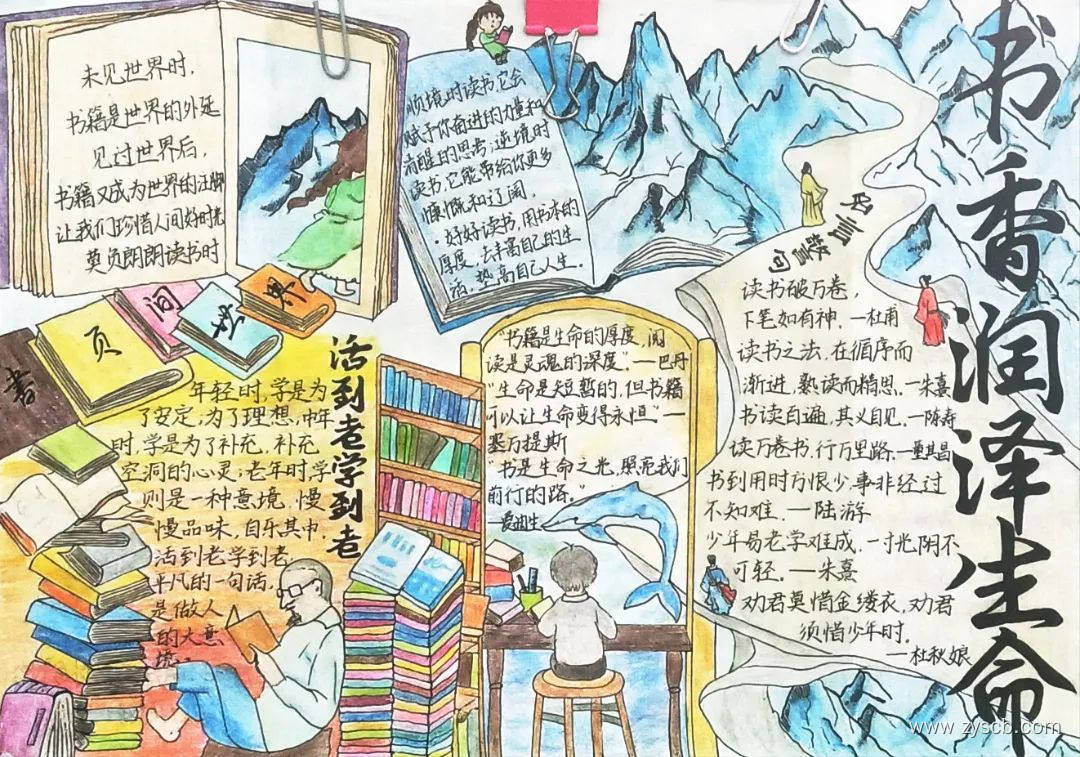 书香润泽生命
未见世界时，
书籍是世界的外延
见过世界后，
书籍又成为世界的注脚
让我们珍惜人间好时光
莫负朗朗读书时
顺境时读书，它会
赋予你奋进的力量和
清醒的思考；逆境时
读书，它能带给你更多
慷慨和辽阔．
·好好读书，用书本的
厚度，去丰富自己的生
活，垫高自己人生．
書
页
间
世
界
活到老学到老
年轻时，学是为
了安定，为了理想，中年
时，学是为了补充，补充
空洞的心灵；老年时，学
则是一种意境，慢
慢品味，自乐其中，
活到老学到老
平凡的一句话，
是做人
的大意
"书籍是生命的厚度，阅
读是灵魂的深度"．—巴丹
"生命是短暂的，但书籍
可以让生命变得永恒"—
塞万提斯
"书是生命之光，照亮我们
前行的路．"
名言警句
读书破万卷，
下笔如有神．—杜甫
读书之法，在循序而
渐进，熟读而精思．—朱熹
书读百遍，其义自见．—陈寿
读万卷书，行万里路．—董其昌
书到用时方恨少，事非经过
不知难．—陆游
少年易老学难成，一寸光阴不
可轻．—朱熹
劝君莫惜金缕衣，劝君
须惜少年时．
—杜秋娘
www.zyscb.com